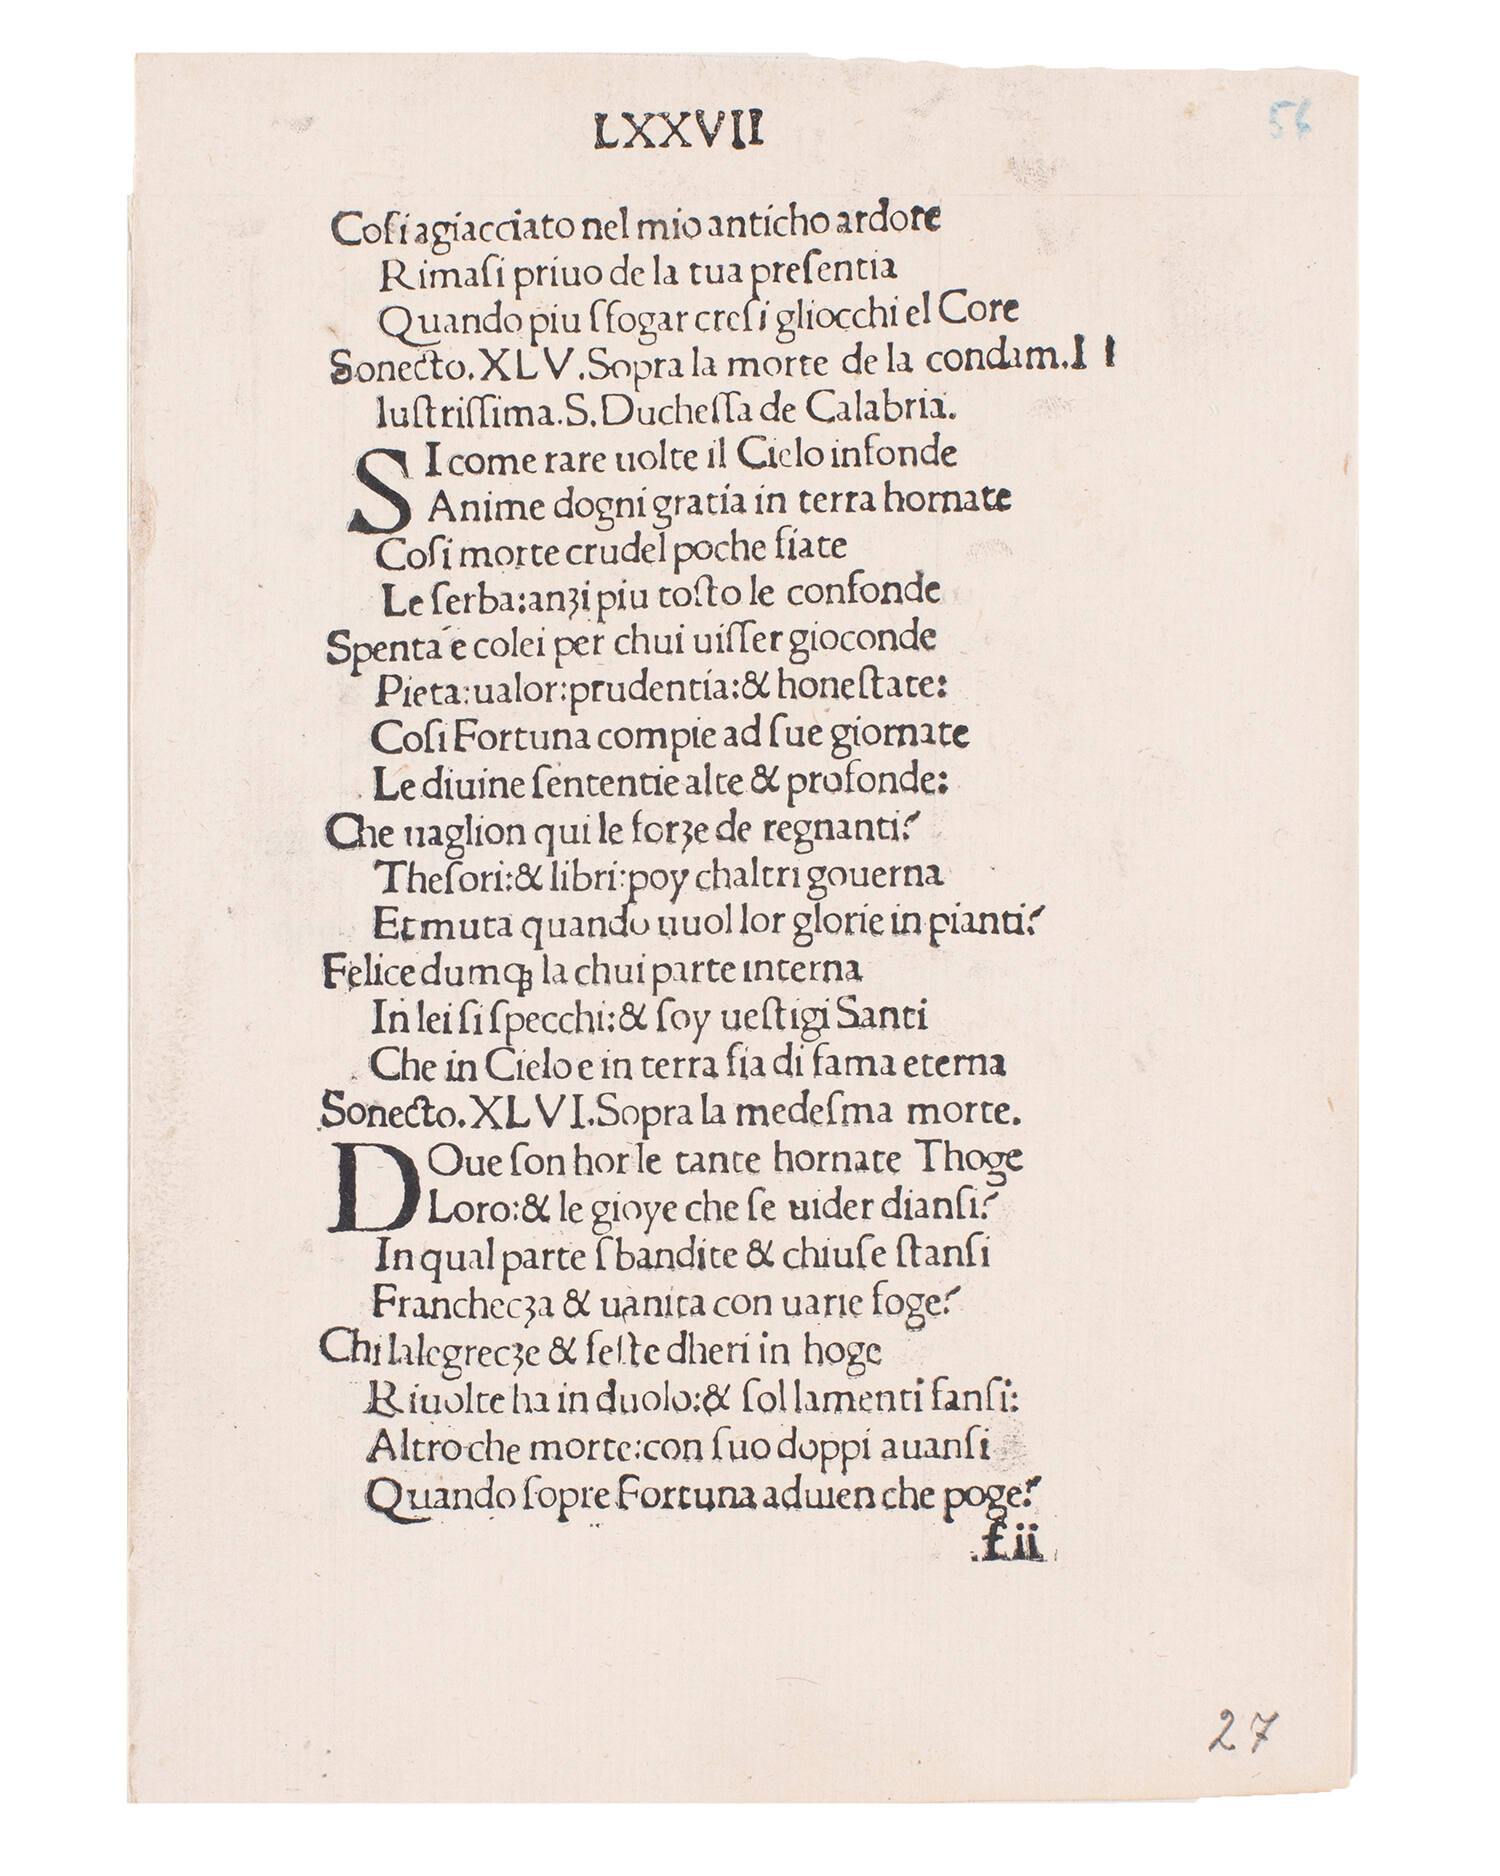 LXXVII
56
Coſi agiacciato nel mio anticho ardore
Rimaſi priuo de la tua preſentia
Quando piu ſfogar creſi gliocchi el Core
Sonecto.XLV.Sopra la morte de la condam.I I
luſtriſſima.S.Ducheſſa de Calabria.
SI come rare uolte il Cielo infonde
Anime dogni gratia in terra hornate
Coſi morte crudel poche fiate
Le ſerba:anʒi piu toſto le confonde
Spenta e colei per chui uiſſer gioconde
Pieta:ualor:prudentia:& honeſtate:
Coſi Fortuna compie ad ſue giornate
Le diuine ſententie alte & profonde:
Che uaglion qui le forʒe de regnanti?
Theſori:& libri:poy chaltri gouerna
Et muta quando uuol lor glorie in pianti?
Felice dumqꝫ la chui parte interna
In lei ſi ſpecchi:& ſoy ueſtigi Santi
Che in Cielo e in terra fia di fama eterna
Sonecto.XLVI.Sopra la medeſma morte.
DOue ſon hor le tante hornate Thoge
Loro:& le gioye che ſe uider dianſi?
In qual parte ſbandite & chiuſe ſtanſi
Franchecʒa & uanita con uarie foge?
Chi lalegrecʒe & feſte dheri in hoge
Riuolte ha in duolo:& ſol lamenti fanſi:
Altro che morte:con ſuo doppi auanſi
Quando ſopre Fortuna aduien che poge?
f ii
27